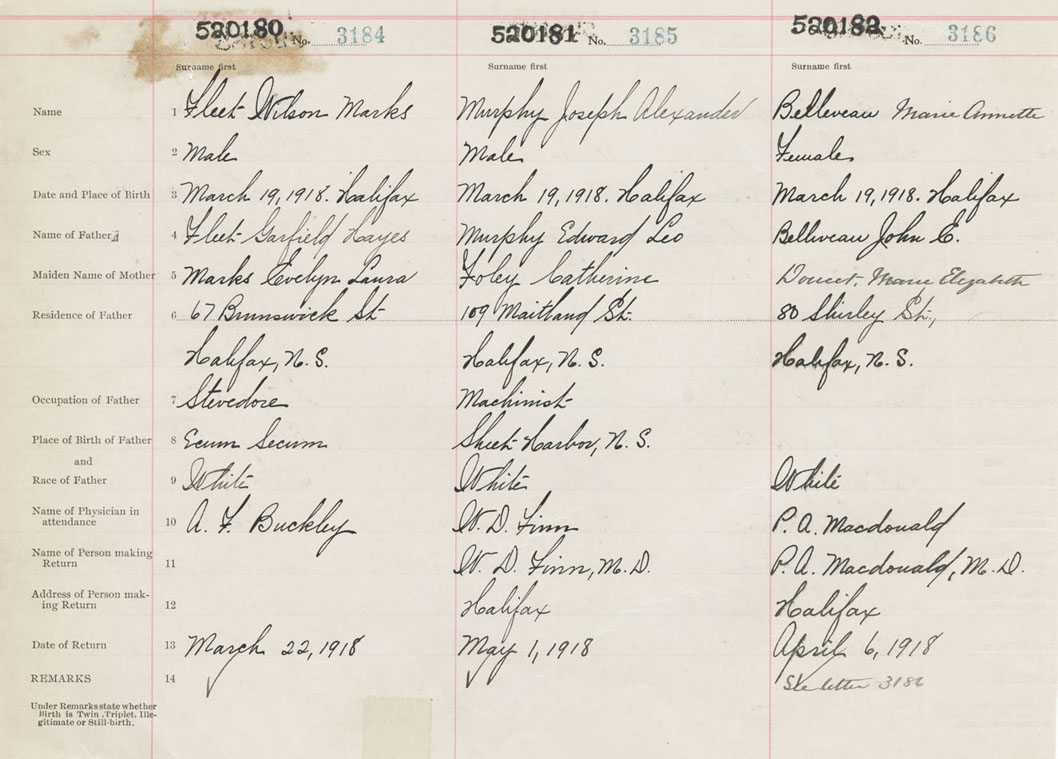 520180 No. 3184 520181 No. 3185 520182 No. 3186
Surname first Surname first Surname first
Name 1 Fleet Wilson Marks Murphy Joseph Alexander Belleveau Marie Annette
Sex 2 Male Male Female
Date and Place of Birth 3 March 19, 1918. Halifax March 19, 1918. Halifax March 19, 1918. Halifax
Name of Father 4 Fleet Garfield Hayes Murphy Edward Leo Belliveau John E.
Maiden Name of Mother 5 Marks Evelyn Laura Foley Catherine Doucet, Marie Elizabeth
Residence of Father 6 67 Brunswick St 109 Maitland St. 80 Shirley St.,
Halifax, N.S. Halifax, N.S. Halifax, N.S.
Occupation of Father 7 Stevedore Machinist
Place of Birth of Father 8 Ecum Secum Sheet Harbor, N.S.
and
Race of Father 9 White White White
Name of Physician in
attendance 10 A. F. Buckley W. D. Finn P. A. Macdonald
Name of Person making
Return 11 W. D. Finn, M.D. P. A. Macdonald, M.D.
Address of Person mak-
ing Return 12 Halifax Halifax
Date of Return 13 March 22, 1918 May 1, 1918 April 6, 1918
REMARKS 14 See letter 3186
Under Remarks state whether
Birth is Twin, Triplet, Ille-
gitimate or Still-birth.